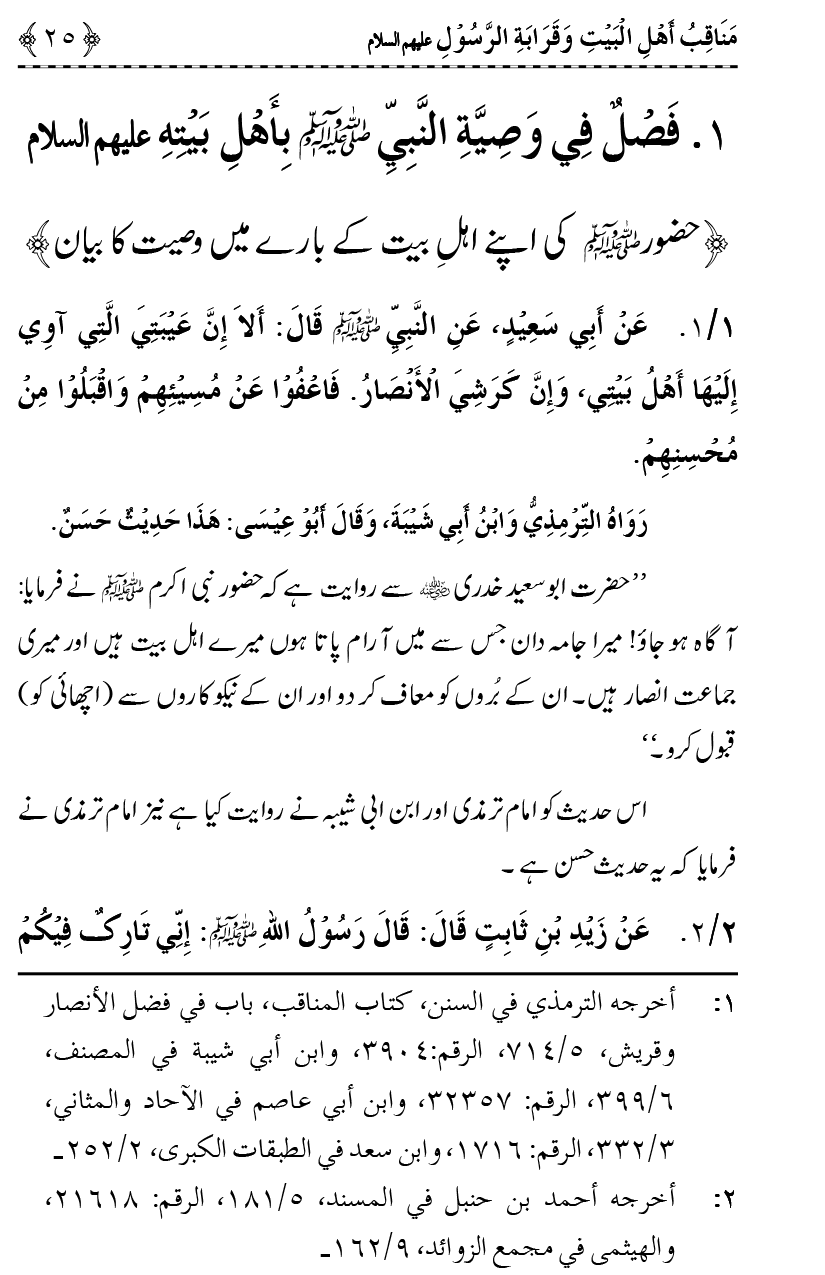 مَنَاقِبُ أَهْلِ الْبَيْتِ وَقَرَابَةِ الرَّسُوْلِ علیہم السلام ﴿٢٥﴾
١. فَصْلٌ فِي وَصِيَّةِ النَّبِيِّ ﷺ بِأَهْلِ بَيْتِهِ علیہم السلام
﴿حضور ﷺ کی اپنے اہلِ بیت کے بارے میں وصیت کا بیان﴾
١/١. عَنْ أَبِي سَعِيْدٍ، عَنِ النَّبِيِّ ﷺ قَالَ: أَلاَ إِنَّ عَيْبَتِيَ الَّتِي آوِي
إِلَيْهَا أَهْلُ بَيْتِي، وَإِنَّ كَرَشِيَ الْأَنْصَارُ. فَاعْفُوْا عَنْ مُسِيْئِهِمْ وَاقْبَلُوْا مِنْ
مُحْسِنِهِمْ.
رَوَاهُ التِّرْمِذِيُّ وَابْنُ أَبِي شَيْبَةَ، وَقَالَ أَبُوْ عِيْسَى: هَذَا حَدِيْثٌ حَسَنٌ.
’’حضرت ابوسعید خدری رضی اللہ عنہ سے روایت ہے کہ حضور نبی اکرم ﷺ نے فرمایا:
آگاہ ہو جاؤ! میرا جامہ دان جس سے میں آرام پاتا ہوں میرے اہل بیت ہیں اور میری
جماعت انصار ہیں۔ ان کے بُروں کو معاف کر دو اور ان کے نیکوکاروں سے (اچھائی کو)
قبول کرو۔‘‘
اس حدیث کو امام ترمذی اور ابن ابی شیبہ نے روایت کیا ہے نیز امام ترمذی نے
فرمایا کہ یہ حدیث حسن ہے۔
٢/٢. عَنْ زَيْدِ بْنِ ثَابِتٍ قَالَ: قَالَ رَسُوْلُ اللهِ ﷺ: إِنِّي تَارِكٌ فِيْكُمْ
١: أخرجه الترمذي في السنن، كتاب المناقب، باب في فضل الأنصار
وقريش، ٧١٤/٥، الرقم:٣٩٠٤، وابن أبي شيبة في المصنف،
٣٩٩/٦، الرقم: ٣٢٣٥٧، وابن أبي عاصم في الآحاد والمثاني،
٣٣٢/٣، الرقم: ١٧١٦، وابن سعد في الطبقات الكبرى، ٢٥٢/٢ـ
٢: أخرجه أحمد بن حنبل في المسند، ١٨١/٥، الرقم: ٢١٦١٨،
والهيثمى في مجمع الزوائد، ١٦٢/٩ـ